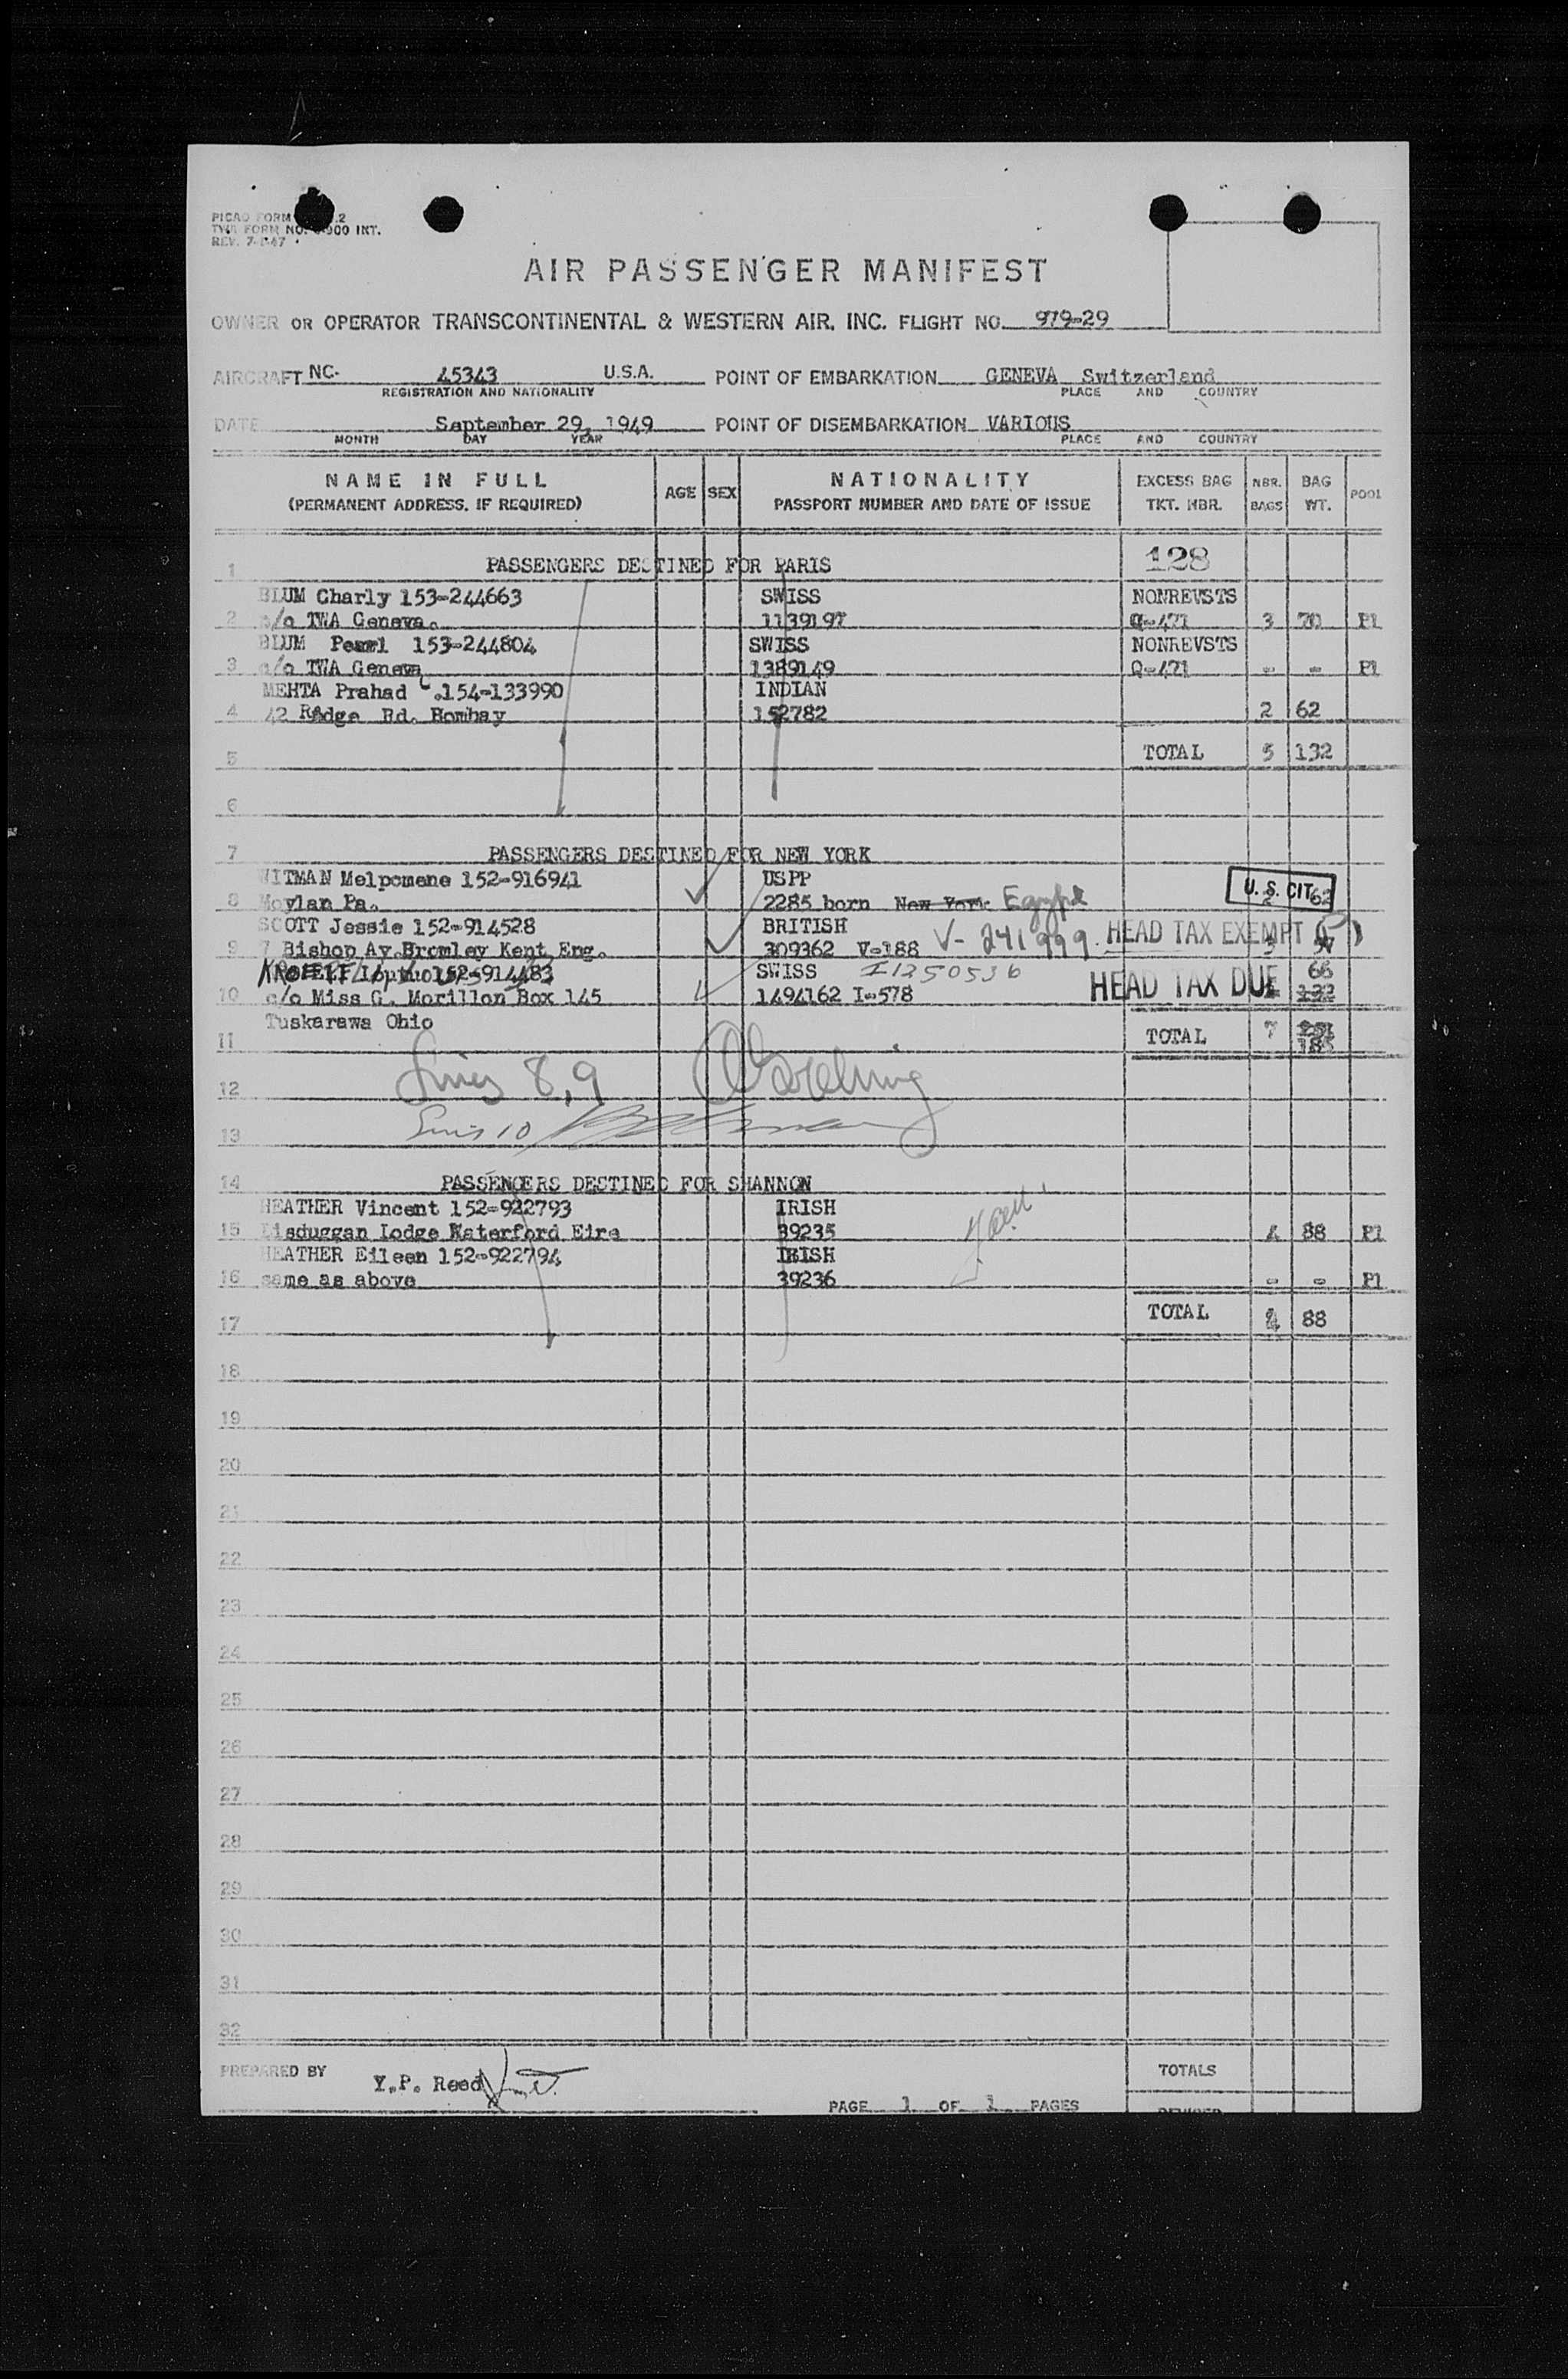 PICAO FORM .2
TWA FORM NO. 900 INT.
REV. 7-1-47
AIR PASSENGER MANIFEST
OWNER OR OPERATOR TRANSCONTINENTAL & WESTERN AIR, INC. FLIGHT NO. 979-29
AIRCRAFT NC- 45343 U.S.A. POINT OF EMBARKATION GENEVA Switzerland
REGISTRATION AND NATIONALITY PLACE AND COUNTRY
DATE September 29, 1949 POINT OF DISEMBARKATION VARIOUS
MONTH DAY YEAR PLACE AND COUNTRY
NAME IN FULL AGE SEX NATIONALITY EXCESS BAG NBR. BAG POOL
(PERMANENT ADDRESS, IF REQUIRED) PASSPORT NUMBER AND DATE OF ISSUE TKT. NBR. BAGS WT.
1 PASSENGERS DESTINED FOR PARIS 128
BLUM Charly 153-244663 SWISS NONREVSTS
2 c/o TWA Geneva. 1139197 Q-471 3 70 P1
BLUM Pearl 153-244804 SWISS NONREVSTS
3 c/o TWA Geneva 1389149 Q-471 - - P1
MEHTA Prahad .154-133990 INDIAN
4 42 Ridge Rd. Bombay 152782 2 62
5 TOTAL 5 132
6
7 PASSENGERS DESTINED FOR NEW YORK
WITMAN Melpomene 152-916941 USPP U.S. CIT
8 Moylan Pa. 2285 born New York Egypt 2 62
SCOTT Jessie 152-914528 BRITISH
9 7 Bishop Av.Bromley Kent Eng. 309362 V-188 V-241999 HEAD TAX EXEMPT 3
152-914483 SWISS I1350536 66
10 c/o Miss G. Morillon Box 145 1494162 I-578 HEAD TAX DUE 132
Tuskarawa Ohio
11 TOTAL 7
12 Lines 8,9
13 Lines 10
14 PASSENGERS DESTINED FOR SHANNON
HEATHER Vincent 152-922793 IRISH
15 Lisduggan Lodge Waterford Eire 39235 4 88 P1
HEATHER Eileen 152-922794 IRISH
16 same as above 39236 - - P1
17 TOTAL 4 88
18
19
20
21
22
23
24
25
26
27
28
29
30
31
32
PREPARED BY Y.P. Reed TOTALS
PAGE 1 OF 1 PAGES